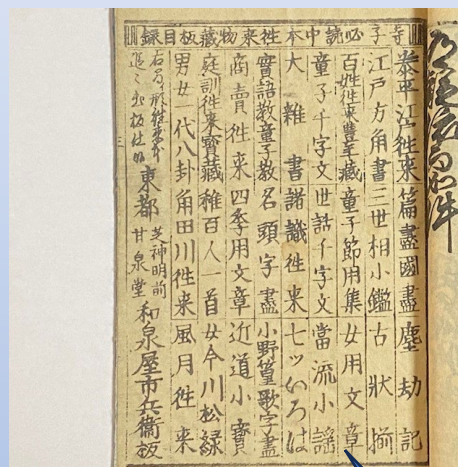 寺子必読中本往来物藏板目録
泰平江戸往来 篇盡國盡 塵劫記
江戸方角書 三世相小鑑 古状揃
百姓往来豊年藏 童子節用集 女用文章
童子千字文 世話千字文 當流小謡
大雜書 諸識往来 七ツいろは
實語教童子教 名頭字盡 小野篁歌字盡
商賣往来 四季用文章 近道小寶
庭訓往来寶藏 稚百人一首 女今川松緑
男女一代八卦 角田川往来 風月往来
追々出板仕候
東都 芝神明前
甘泉堂 和泉屋市兵衞板